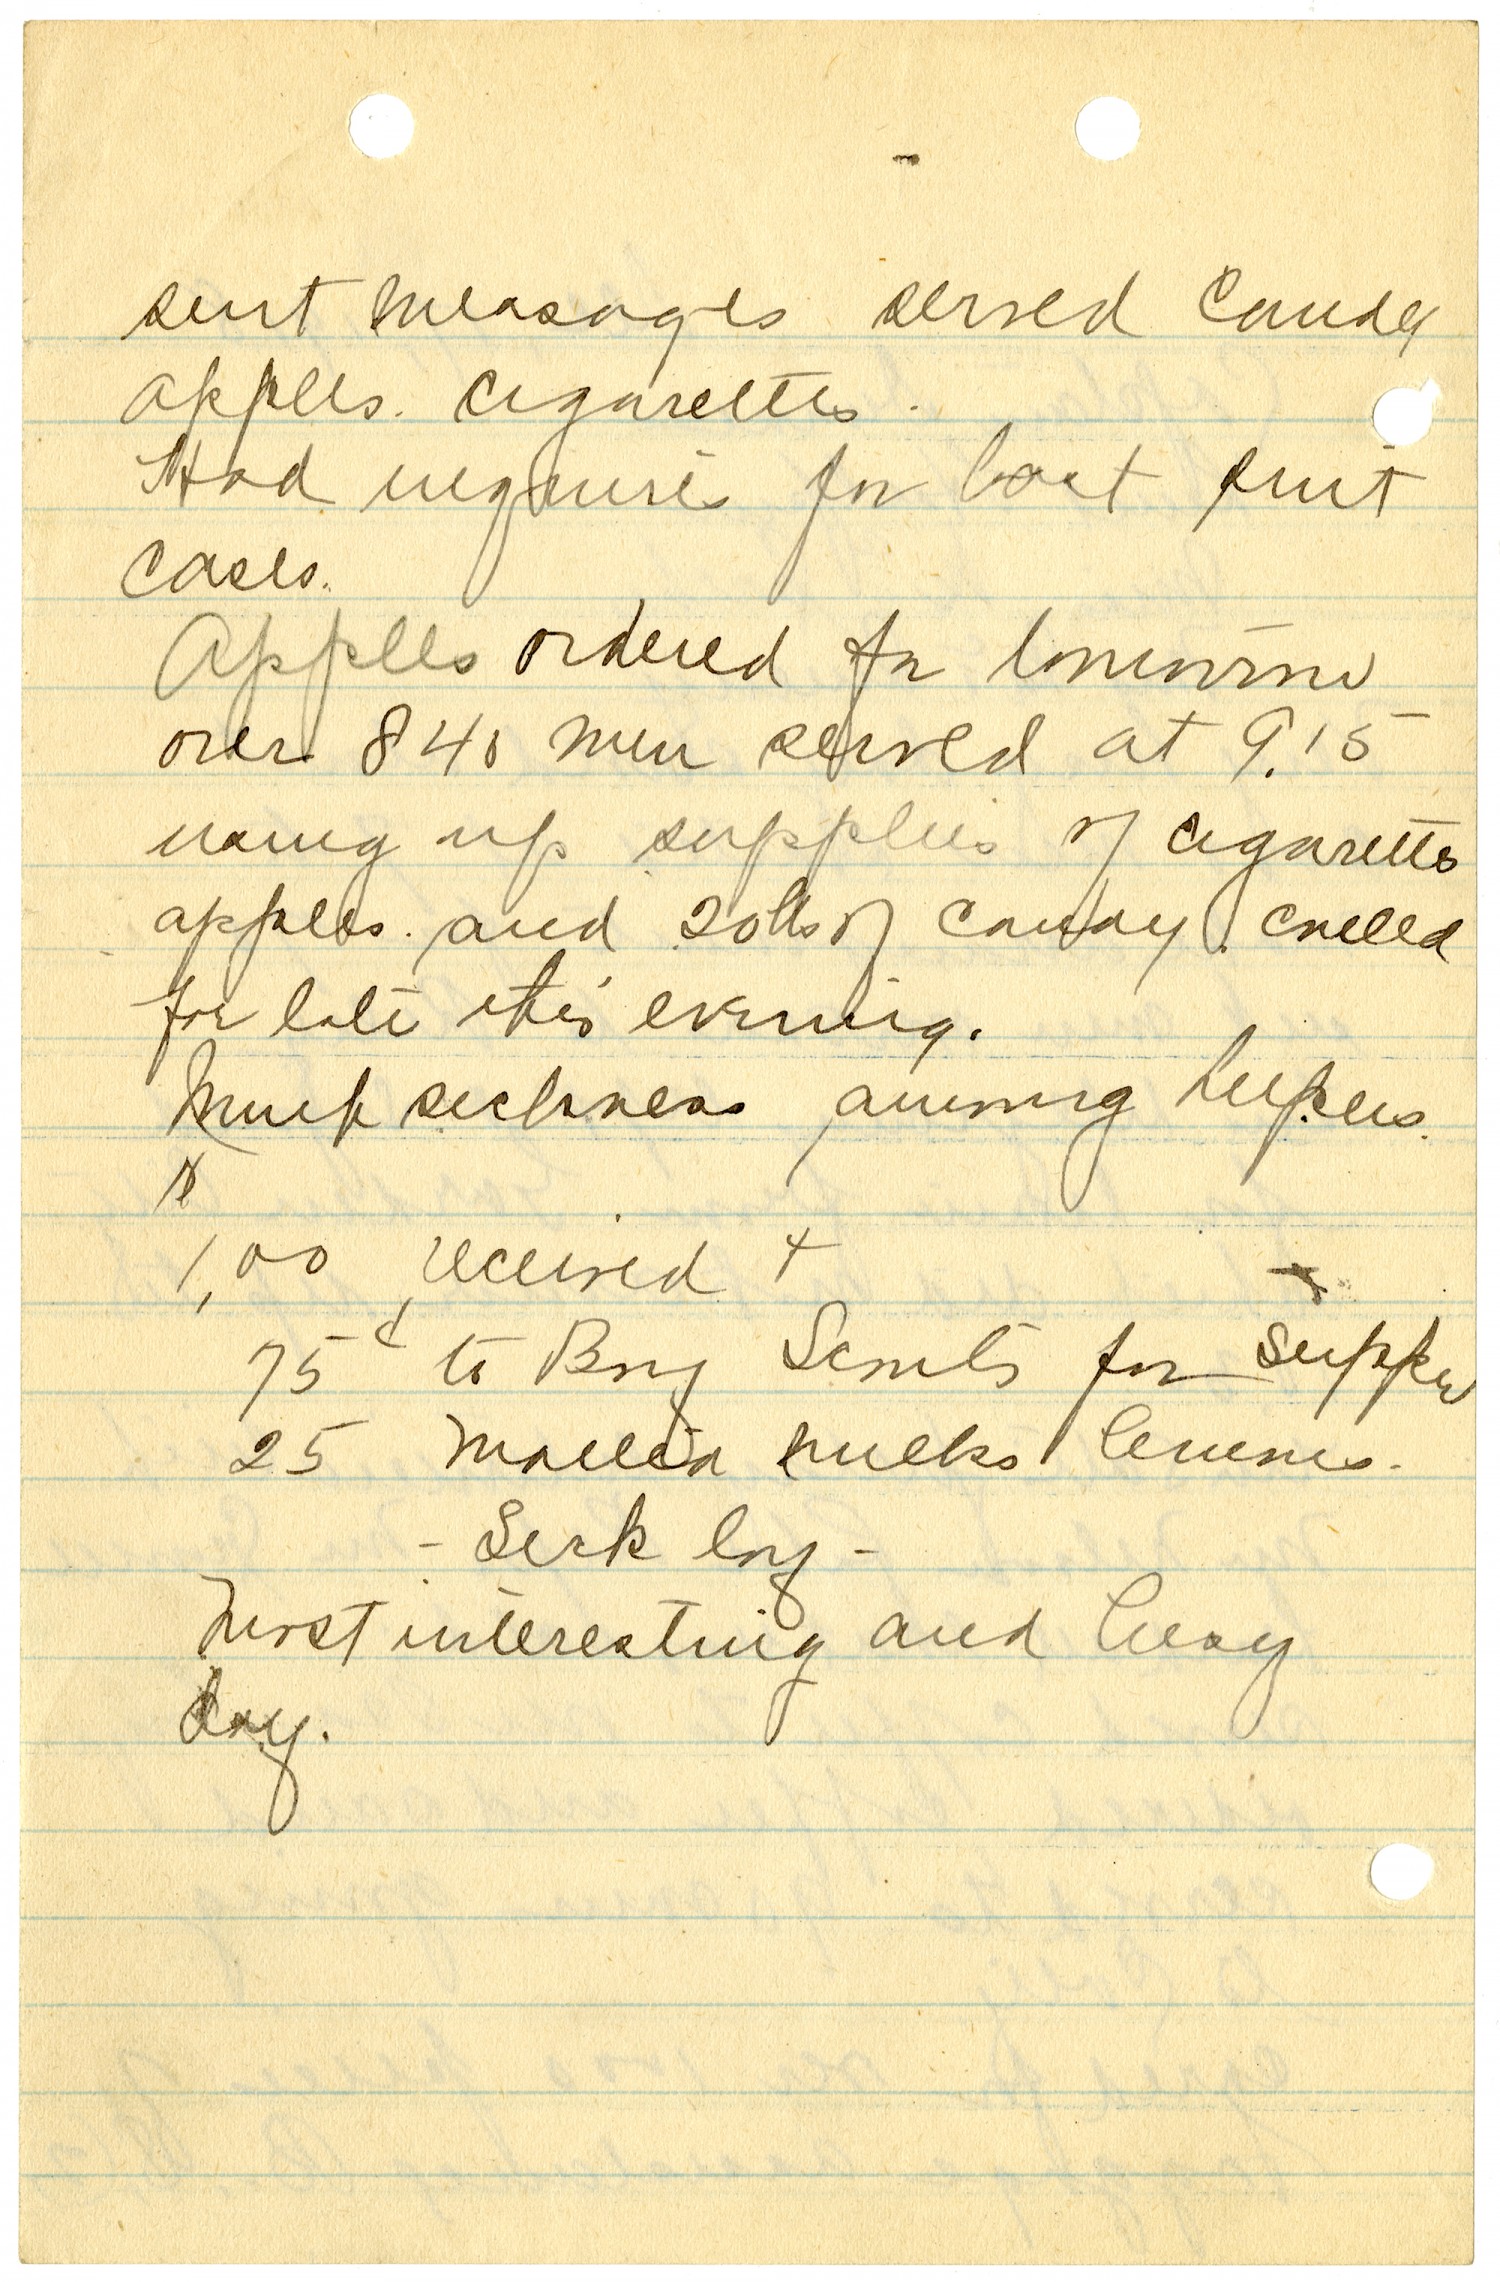 sent messages served candy
apples. cigarettes.
Had inquires for lost suit
cases.
Apples ordered for tomorrow
over 840 men served at 9.15
using up supplies of cigaretts
apples. and 20 lbs of candy. called
for late this evening.
Much sickness among helpers.
$
1,00 received +
75¢ to Boy Scouts for supper
25 malted milks
- Sick boy -
Most interesting and busy
day.